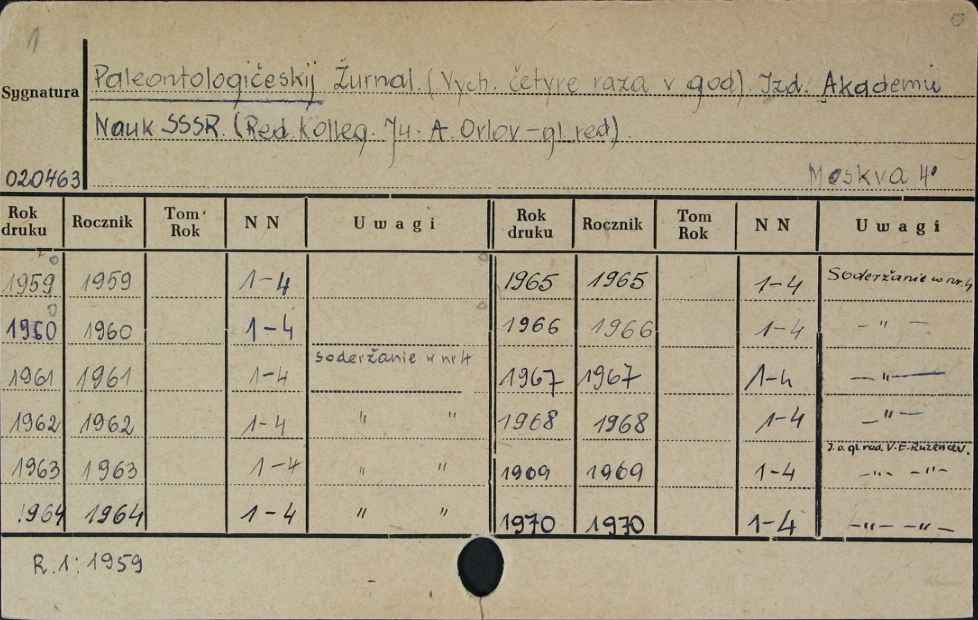 1
Paleontologičeskij Žurnal. (Vych. četyre raza v god). Izd. Akademii
Sygnatura
Nauk SSSR. (Red. Kolleg. Ju. A. Orlov – gl. red).
020463
Moskva 4°
Rok druku Rocznik Tom Rok N N Uwagi Rok druku Rocznik Tom Rok N N Uwagi
1959 1959 1-4 1965 1965 1-4 Soderžanie w nr. 4
1960 1960 1-4 1966 1966 1-4 - " -
1961 1961 1-4 soderžanie w nr 4 1967 1967 1-4 - " -
1962 1962 1-4 " " 1968 1968 1-4 - " -
1963 1963 1-4 " " 1969 1969 1-4 gl. red. V. E. Ružencev. - " - - " -
1964 1964 1-4 " " 1970 1970 1-4 - " - - " -
R. 1: 1959